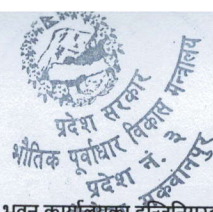 प्रदेश सरकार
भौतिक पूर्वाधार विकास मन्त्रालय
प्रदेश नं. ३
मकवानपुर
भवन कार्यालयका